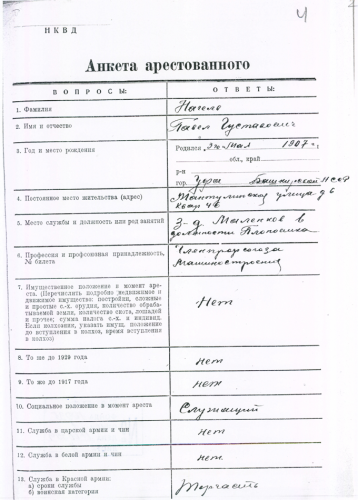 4
НКВД
Анкета арестованного
ВОПРОСЫ: ОТВЕТЫ:
1. Фамилия
2. Имя и отчество Павел Густавович
3. Год и место рождения Родился „ мая 1907 г.
обл., край
р-н
гор. Уфа Башкирской АССР
4. Постоянное место жительства (адрес) улица д 6
5. Место службы и должность или род занятий З-д в
должности
6. Профессия и профсоюзная принадлежность, № билета Член профсоюза
Машиностроения
7. Имущественное положение в момент аре-
ста. (Перечислить подробно недвижимое и
движимое имущество: постройки, сложные
и простые с.-х. орудия, количество обраба-
тываемой земли, количество скота, лошадей
и прочее; сумма налога с.-х. и индивид.
Если колхозник, указать имущ. положение
до вступления в колхоз, время вступления
в колхоз) Нет
8. То же до 1929 года нет
9. То же до 1917 года нет
10. Социальное положение в момент ареста Служащий
11. Служба в царской армии и чин нет
12. Служба в белой армии и чин нет
13. Служба в Красной армии:
а) сроки службы
б) воинская категория